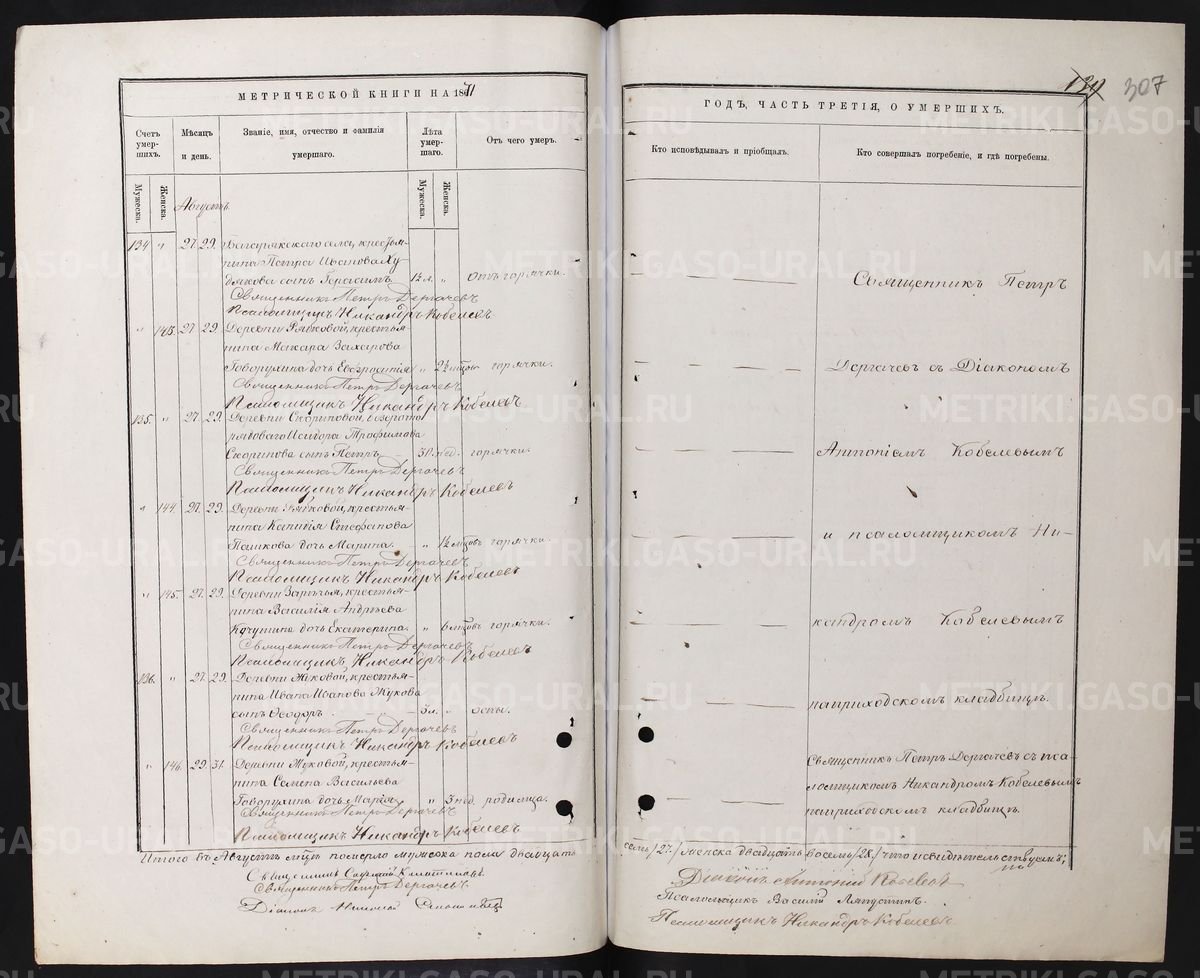 МЕТРИЧЕСКОЙ КНИГИ НА 1871
Счетъ умер-шихъ.
Мѣсяцъ и день.
Званіе, имя, отчество и фамилія умершаго.
Лѣта умер-шаго.
Отъ чего умеръ.
Мужеска.
Женска.
Мужеска.
Женска.
Августъ
134 " 27. 29. Багарякскаго села, крестья-
нина Петра Иванова Ху-
дякова сынъ Герасимъ 1½ л. " Отъ горячки.
Священникъ Петръ Дергачевъ
Псаломщикъ Никандръ Кобелевъ
" 143. 27 29. Деревни крестья-
нина Макара Захарова
Говорулина дочь Евфросинія " 2½ мцовъ горячки.
Священникъ Петръ Дергачевъ
Псаломщикъ Никандръ Кобелевъ
135. " 27. 29. Деревни
рядоваго Исидора Трофимова
Скоринова сынъ Петръ 3 нед. горячки.
Священникъ Петръ Дергачевъ
Псаломщикъ Никандръ Кобелевъ
" 144. 27. 29. Деревни крестья-
нина Стефанова
Пашкова дочь Марина. " 1½ мцовъ горячки.
Священникъ Петръ Дергачевъ
Псаломщикъ Никандръ Кобелевъ
" 145. 27. 29. Деревни крестья-
нина Василія Андреева
дочь Екатерина. " 6 мцовъ горячки.
Священникъ Петръ Дергачевъ
Псаломщикъ Никандръ Кобелевъ
136. " 27. 29. Деревни Жуковой, крестья-
нина Ивана Иванова Жукова
сынъ Ѳеодоръ. 3 л. " оспы.
Священникъ Петръ Дергачевъ
Псаломщикъ Никандръ Кобелевъ
" 146. 29. 31. Деревни Жуковой, крестья-
нина Семена Васильева
Говорулина дочь Марія " 3 нед. родимца.
Священникъ Петръ Дергачевъ
Псаломщикъ Никандръ Кобелевъ
Итого въ Августѣ мцѣ померло мужеска пола двадцать
Священникъ
Священникъ Петръ Дергачевъ
Діаконъ
139 307
ГОДЪ, ЧАСТЬ ТРЕТІЯ, О УМЕРШИХЪ.
Кто исповѣдывалъ и пріобщалъ.
Кто совершалъ погребеніе, и гдѣ погребены.
Священникъ Петръ
Дергачевъ съ Діакономъ
Антоніемъ Кобелевымъ
и псаломщикомъ Ни-
кандромъ Кобелевымъ
на приходскомъ кладбищѣ.
Священникъ Петръ Дергачевъ съ пса-
ломщикомъ Никандромъ Кобелевымъ
на приходскомъ кладбищѣ.
семь /27./ женска двадцать восемь /28./ что и свидѣтельствуемъ;
Діаконъ Антоній Кобелевъ
Псаломщикъ Василій
Псаломщикъ Никандръ Кобелевъ.
METRIKI.GASO-URAL.RU